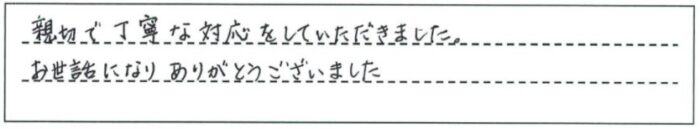 親切で丁寧な対応をしていただきました。
お世話になりありがとうございました